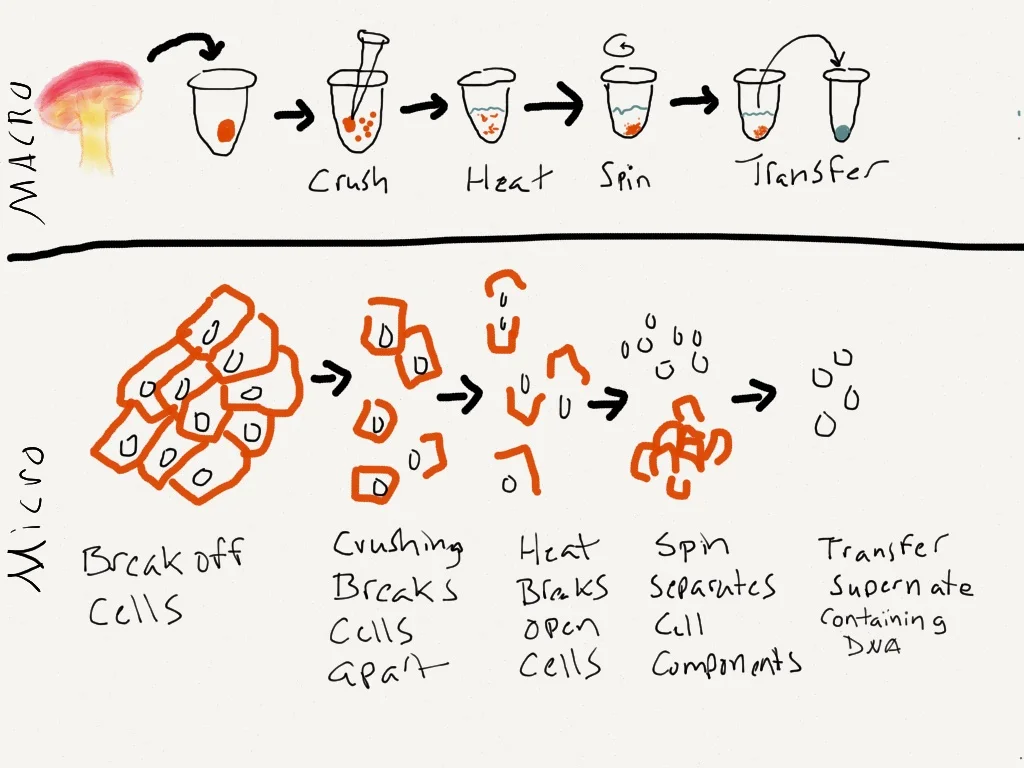 MACRO
Crush
Heat
Spin
Transfer
Micro
Break off
Cells
Crushing
Breaks
Cells
apart
Heat
Breaks
open
Cells
Spin
separates
Cell
Components
Transfer
supernate
containing
DNA